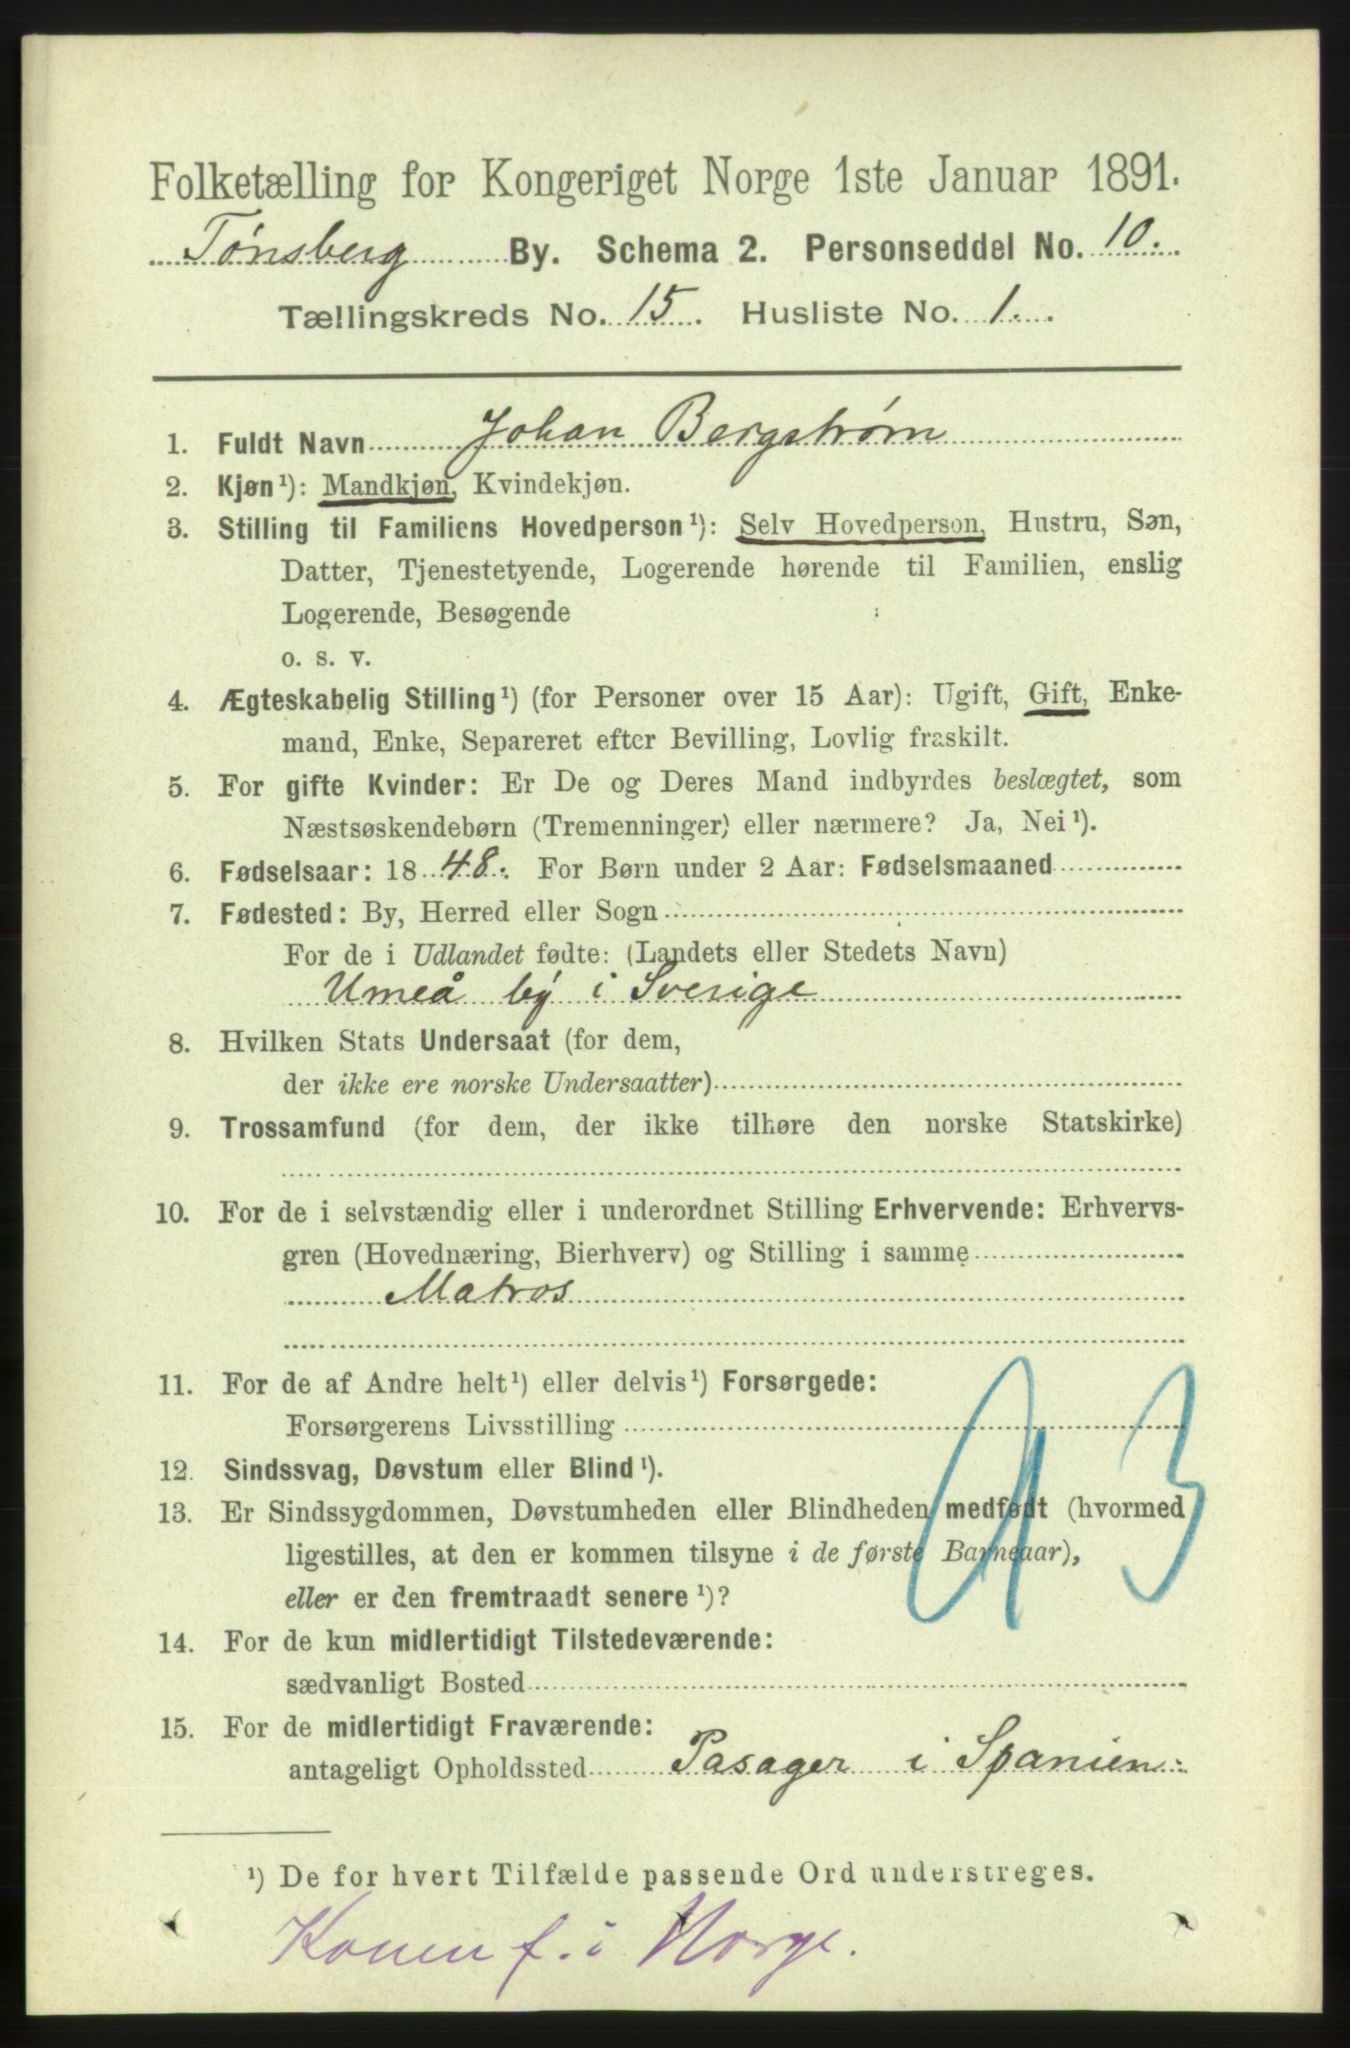 Folketælling for Kongeriget Norge 1ste Januar 1891.
Tønsberg By. Schema 2. Personseddel No. 10.
Tællingskreds No. 15. Husliste No. 1.
1. Fuldt Navn Johan Bergstrøm
2. Kjøn¹): Mandkjøn, Kvindekjøn.
3. Stilling til Familiens Hovedperson¹): Selv Hovedperson, Hustru, Søn,
Datter, Tjenestetyende, Logerende hørende til Familien, enslig
Logerende, Besøgende
o. s. v.
4. Ægteskabelig Stilling¹) (for Personer over 15 Aar): Ugift, Gift, Enke-
mand, Enke, Separeret efter Bevilling, Lovlig fraskilt.
5. For gifte Kvinder: Er De og Deres Mand indbyrdes beslægtet, som
Næstsøskendebørn (Tremenninger) eller nærmere? Ja, Nei¹).
6. Fødselsaar: 1848. For Børn under 2 Aar: Fødselsmaaned
7. Fødested: By, Herred eller Sogn
For de i Udlandet fødte: (Landets eller Stedets Navn)
Umeå by i Sverige
8. Hvilken Stats Undersaat (for dem,
der ikke ere norske Undersaatter)
9. Trossamfund (for dem, der ikke tilhøre den norske Statskirke)
10. For de i selvstændig eller i underordnet Stilling Erhvervende: Erhvervs-
gren (Hovednæring, Bierhverv) og Stilling i samme
Matros
11. For de af Andre helt¹) eller delvis¹) Forsørgede:
Forsørgerens Livsstilling
12. Sindssvag, Døvstum eller Blind¹).
13. Er Sindssygdommen, Døvstumheden eller Blindheden medfødt (hvormed
ligestilles, at den er kommen tilsyne i de første Barneaar),
eller er den fremtraadt senere¹)?
14. For de kun midlertidigt Tilstedeværende:
sædvanligt Bosted
15. For de midlertidigt Fraværende:
antageligt Opholdssted Pasager i Spanien.
¹) De for hvert Tilfælde passende Ord understreges.
Konen f. i Norge.